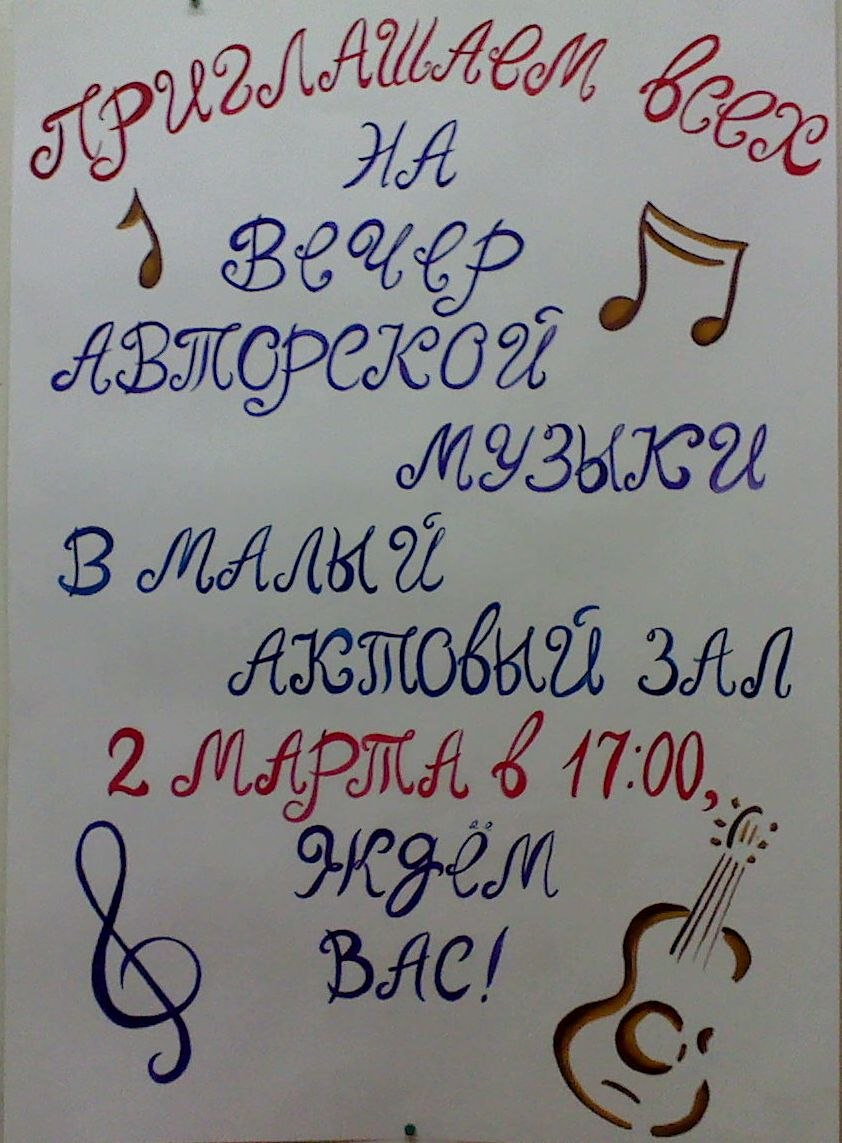 ПРИГЛАШАЕМ ВСЕХ
НА
ВЕЧЕР
АВТОРСКОЙ
МУЗЫКИ
В МАЛЫЙ
АКТОВЫЙ ЗАЛ
2 МАРТА в 17:00,
ЖДЁМ
ВАС!